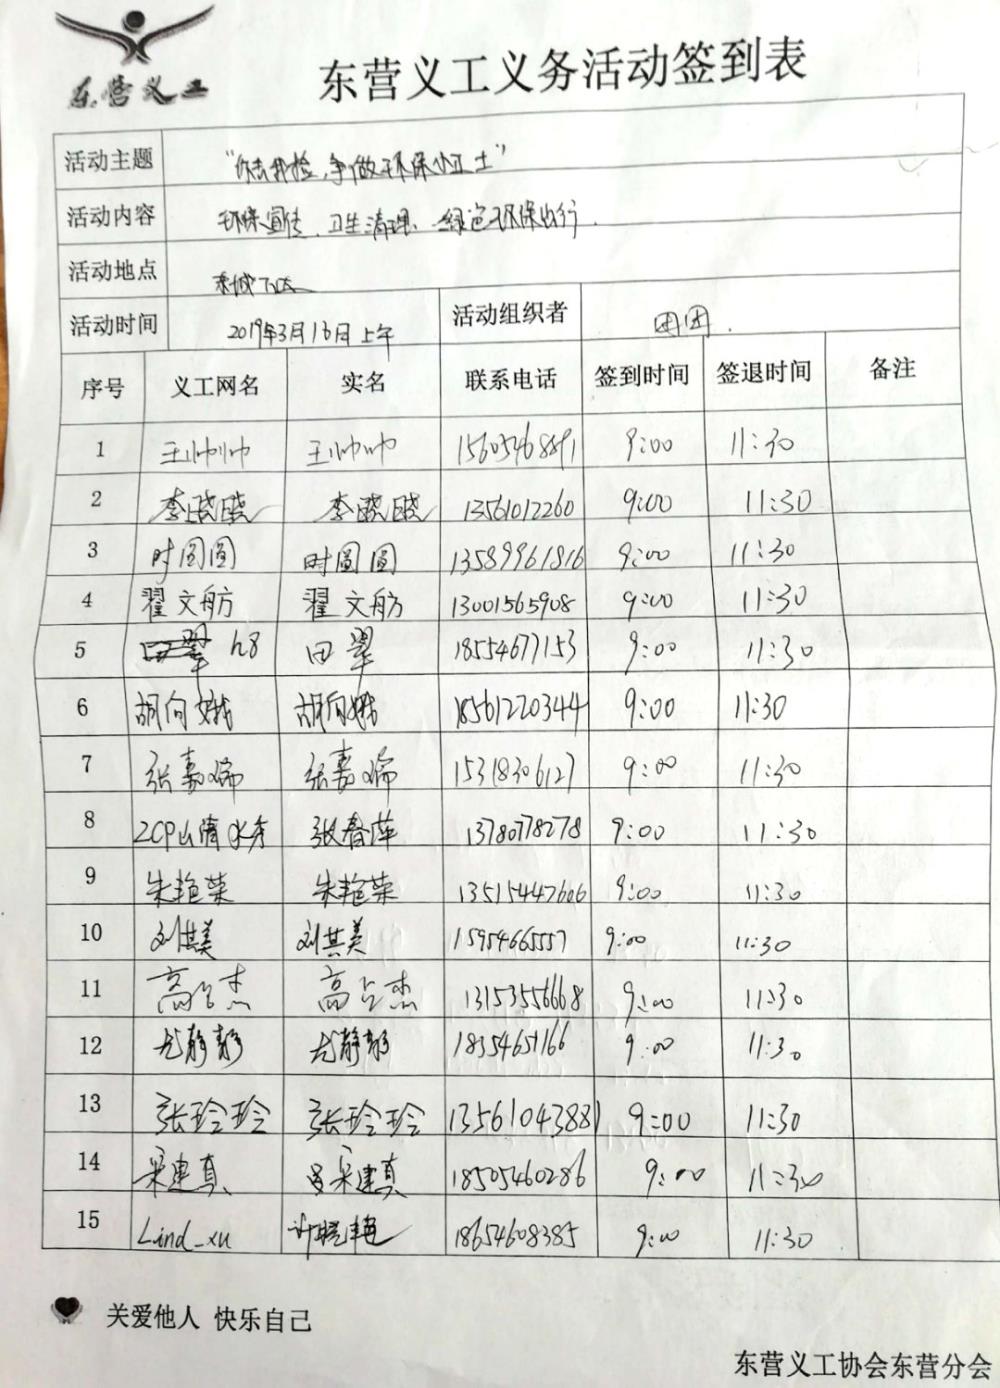 东营义工
东营义工义务活动签到表
活动主题 "你丢我捡,争做环保小卫士"
活动内容 环保宣传、卫生清理、绿色环保出行.
活动地点
活动时间 2019年3月16日上午 活动组织者 团团.
序号 义工网名 实名 联系电话 签到时间 签退时间 备注
1 王帅帅 王帅帅 15605468891 9:00 11:30
2 李晓晓 李晓晓 13561012260 9:00 11:30
3 时圆圆 时圆圆 13589961816 9:00 11:30
4 翟文舫 翟文舫 13001565908 9:00 11:30
5 田翠 h8 田翠 18554677153 9:00 11:30
6 胡向娥 胡向娥 18561220344 9:00 11:30
7 张嘉瑞 张嘉瑞 15318306127 9:00 11:30
8 ZCP山清水秀 张春萍 13780778278 9:00 11:30
9 朱艳荣 朱艳荣 13515447606 9:00 11:30
10 刘其美 刘其美 15954665557 9:00 11:30
11 高占杰 高占杰 13153556668 9:00 11:30
12 尤静静 尤静静 18354651166 9:00 11:30
13 张玲玲 张玲玲 13561043881 9:00 11:30
14 采建真 采建真 18505460286 9:00 11:30
15 Lind_xu 许晓艳 18654608385 9:00 11:30
关爱他人 快乐自己
东营义工协会东营分会